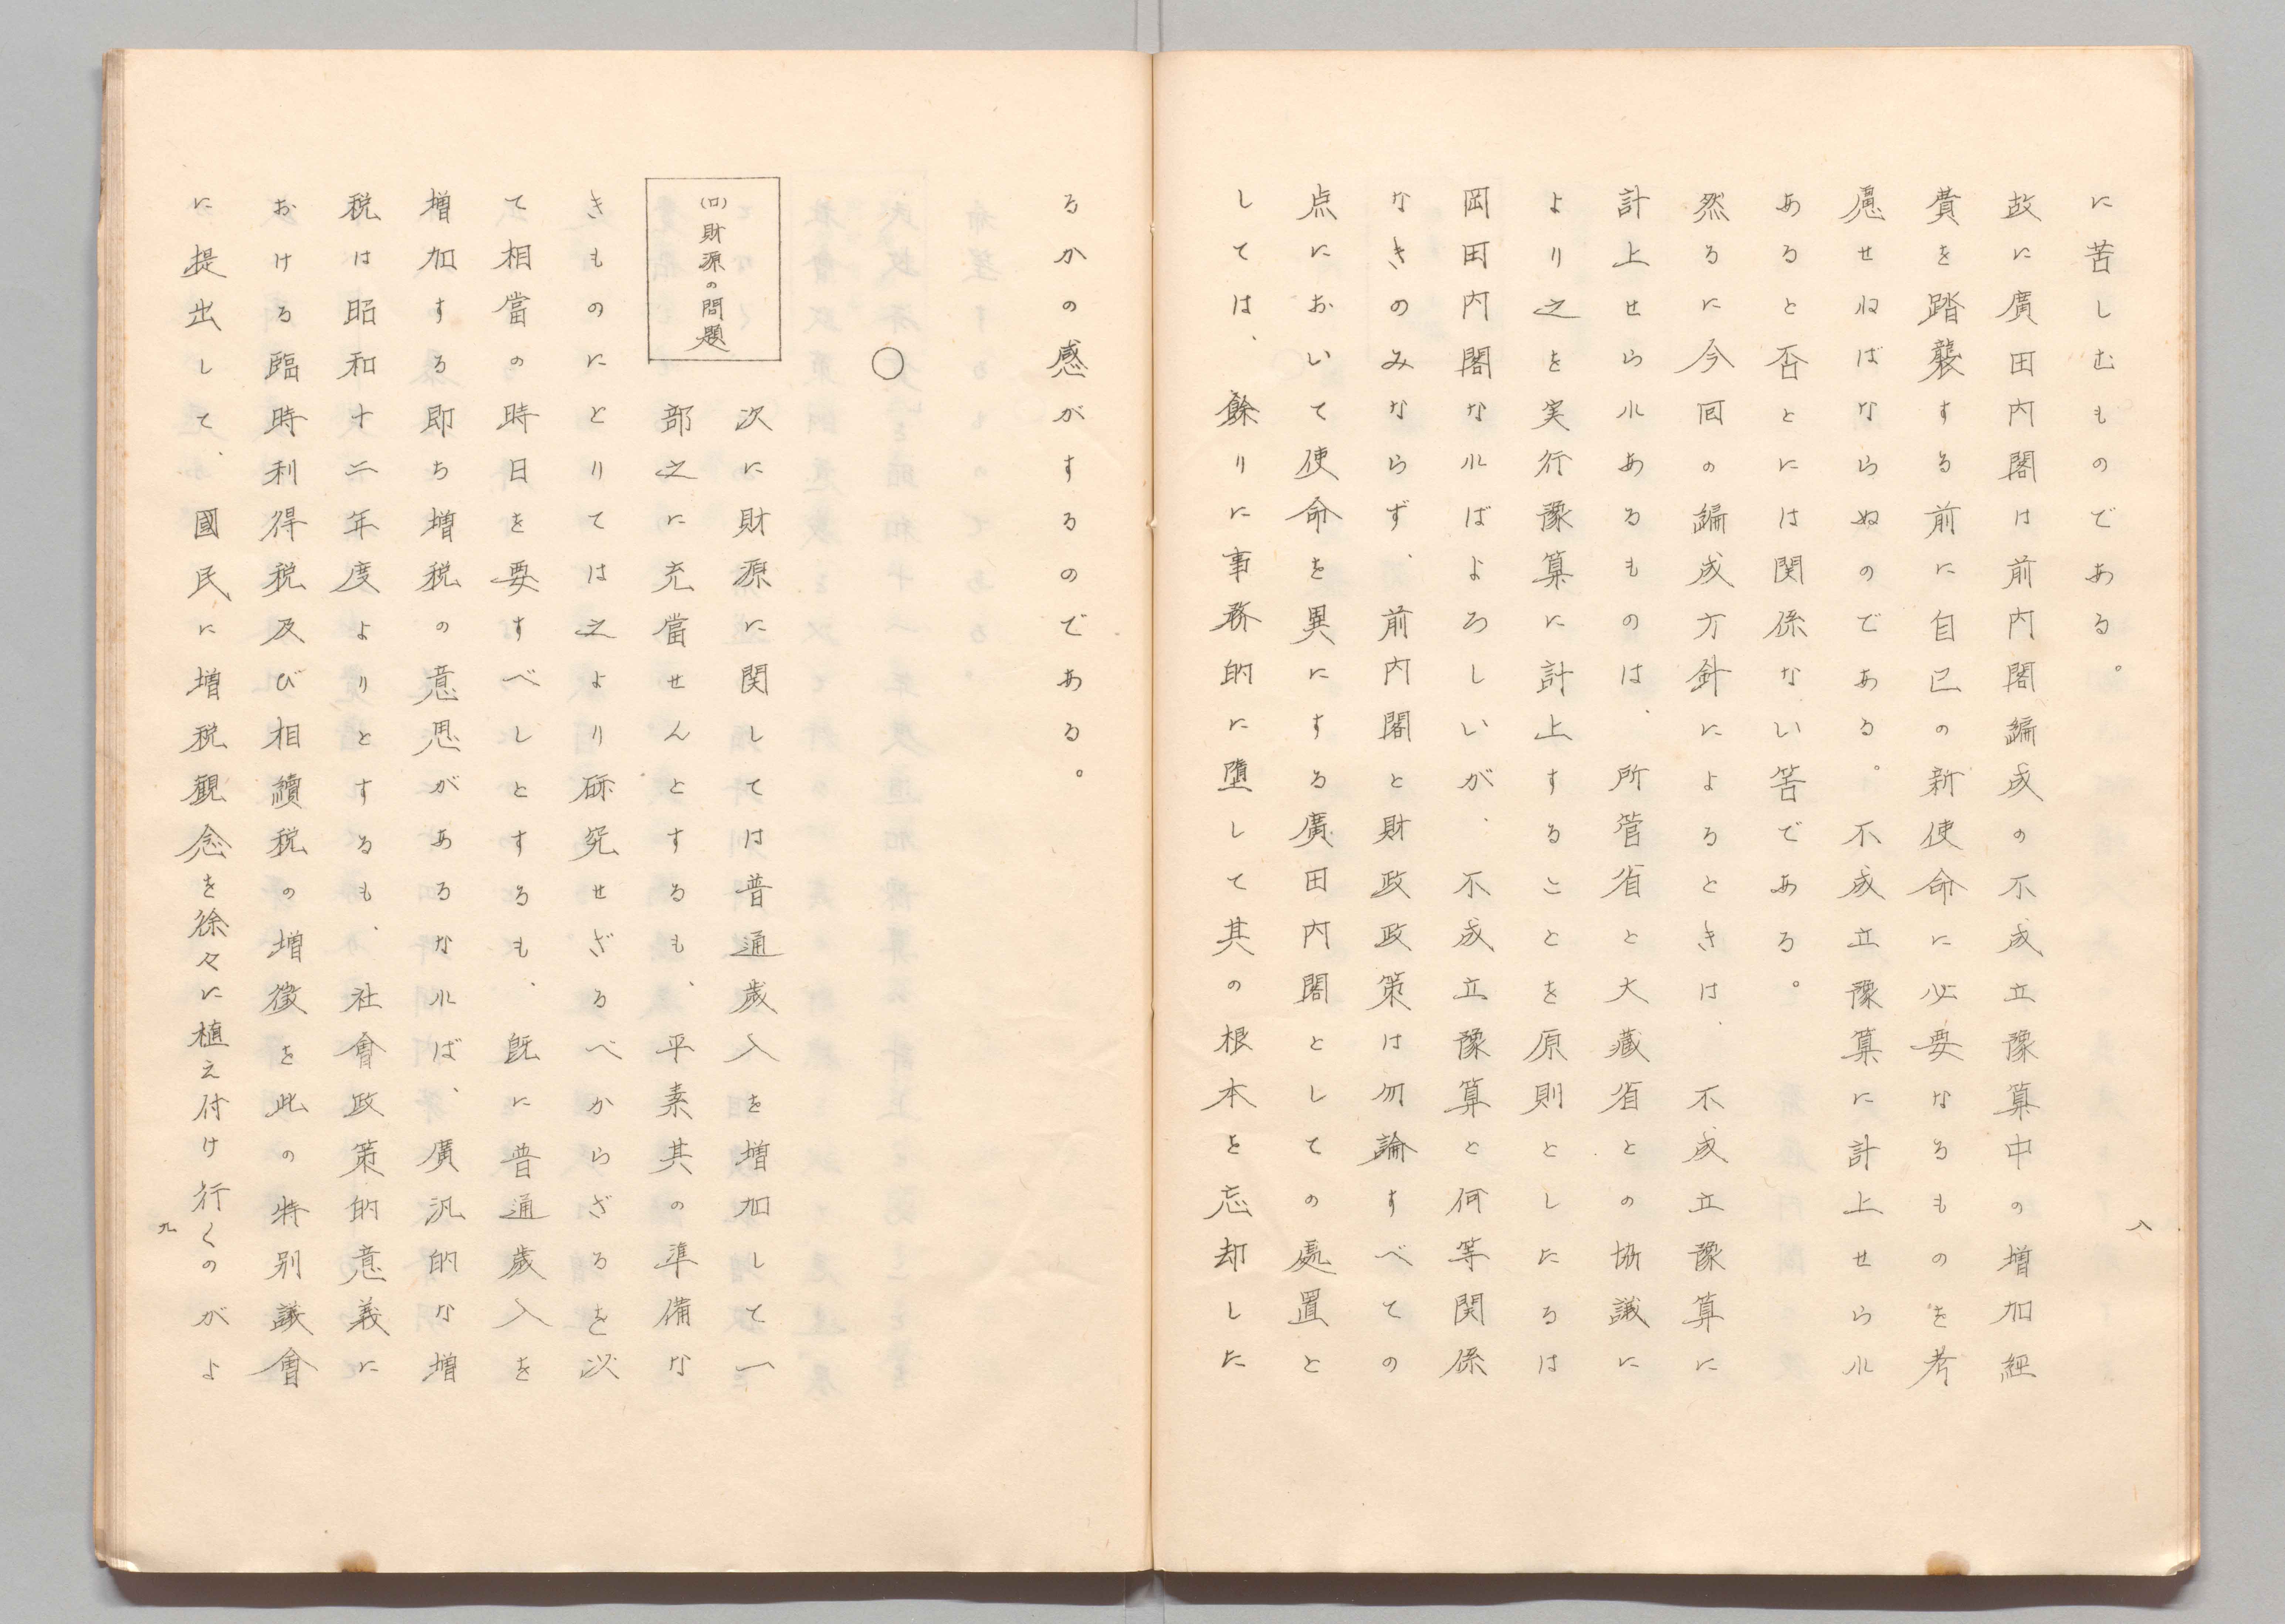 に苦しむものである。
故に廣田内閣は前内閣編成の不成立豫算中の増加経
費を踏襲する前に自己の新使命に必要なるものを考
慮せねばならぬのである。不成立豫算に計上せられ
あると否とには関係ない筈である。
然るに今回の編成方針によるときは、不成立豫算に
計上せられあるものは、所管省と大藏省との協議に
より之を実行豫算に計上することを原則としたるは
岡田内閣なればよろしいが、不成立豫算と何等関係
なきのみならず、前内閣と財政政策は勿論すべての
点において使命を異にする廣田内閣としての處置と
しては、餘りに事務的に墮して其の根本を忘却した
八
るかの感がするのである。
○
(ロ)財源の問題
次に財源に関しては普通歳入を増加して一
部之に充當せんとするも、平素其の準備な
きものにとりては之より研究せざるべからざるを以
て相當の時日を要すべしとするも、既に普通歳入を
増加する即ち増税の意思があるなれば、廣汎的な増
税は昭和十二年度よりとするも、社會政策的意義に
おける臨時利得税及び相續税の増徴を此の特別議會
に提出して、國民に増税観念を徐々に植え付け行くのがよ
九